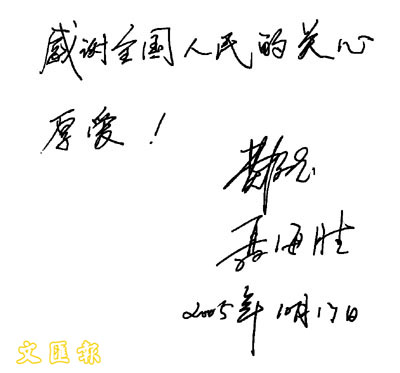 感谢全国人民的关心
厚爱！
费俊龙
聂海胜
2005年10月17日
文匯報